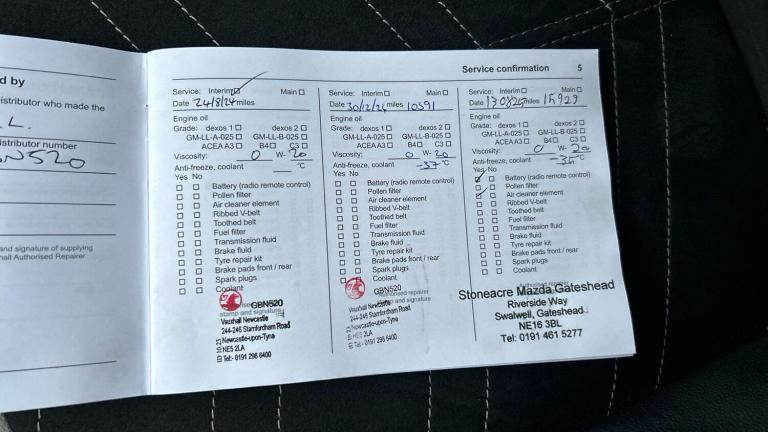 d by
istributor who made the
L.
stributor number
GN520
and signature of supplying
hall Authorised Repairer
Service confirmation 5
Service: Interim Main
Date 24/8/24 miles
Engine oil
Grade: dexos 1 dexos 2
GM-LL-A-025 GM-LL-B-025
ACEA A3 B4 C3
Viscosity: 0 W- 20
Anti-freeze, coolant °C
Yes No
Battery (radio remote control)
Pollen filter
Air cleaner element
Ribbed V-belt
Toothed belt
Fuel filter
Transmission fluid
Brake fluid
Tyre repair kit
Brake pads front / rear
Spark plugs
Coolant
GBN520
stamp and signature
Vauxhall Newcastle
244-246 Stamfordham Road
Newcastle-upon-Tyne
NE5 2LA
Tel:- 0191 286 6400
Service: Interim Main
Date 30/12/24 miles 10591
Engine oil
Grade: dexos 1 dexos 2
GM-LL-A-025 GM-LL-B-025
ACEA A3 B4 C3
Viscosity: 0 W- 20
Anti-freeze, coolant -37 °C
Yes No
Battery (radio remote control)
Pollen filter
Air cleaner element
Ribbed V-belt
Toothed belt
Fuel filter
Transmission fluid
Brake fluid
Tyre repair kit
Brake pads front / rear
Spark plugs
Coolant
GBN520
Authorised repairer
stamp and signature
Vauxhall Newcastle
244-246 Stamfordham Road
Newcastle-upon-Tyne
NE5 2LA
Tel:- 0191 286 6400
Service: Interim Main
Date 130825 miles 15929
Engine oil
Grade: dexos 1 dexos 2
GM-LL-A-025 GM-LL-B-025
ACEA A3 B4 C3
Viscosity: 0 W- 20
Anti-freeze, coolant -35 °C
Yes No
Battery (radio remote control)
Pollen filter
Air cleaner element
Ribbed V-belt
Toothed belt
Fuel filter
Transmission fluid
Brake fluid
Tyre repair kit
Brake pads front / rear
Spark plugs
Coolant
Stoneacre Mazda Gateshead
Riverside Way
Swalwell, Gateshead
NE16 3BL
Tel: 0191 461 5277